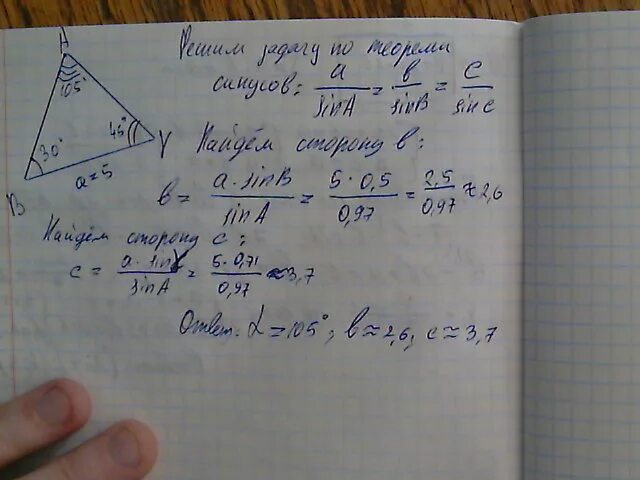 A
105°
45°
30°
B
γ
a=5
Решим задачу по теореми
синусов: a/sinA = в/sinB = c/sin c
Найдём сторону в:
в = a·sinB/sinA = 5·0,5/0,97 = 2,5/0,97 ≈ 2,6
Найдём сторону c:
c = a·sinγ/sinA = 5·0,71/0,97 ≈ 3,7
Ответ: α=105°; в≈2,6; c≈3,7